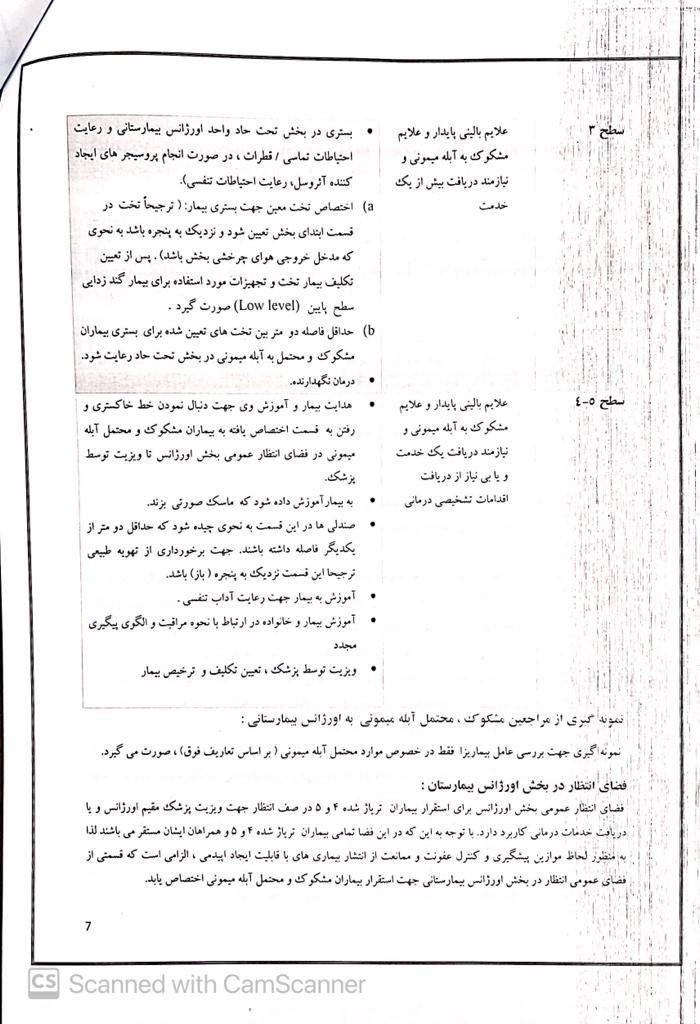 سطح ۳
علایم بالینی پایدار و علایم
مشکوک به آبله میمونی و
نیازمند دریافت بیش از یک
خدمت
• بستری در بخش تحت حاد واحد اورژانس بیمارستانی و رعایت
احتیاطات تماسی / قطرات ، در صورت انجام پروسیجر های ایجاد
کننده آئروسل، رعایت احتیاطات تنفسی).
a) اختصاص تخت معین جهت بستری بیمار: ( ترجیحاً تخت در
قسمت ابتدای بخش تعیین شود و نزدیک به پنجره باشد به نحوی
که مدخل خروجی هوای چرخشی بخش باشد) . پس از تعیین
تکلیف بیمار تخت و تجهیزات مورد استفاده برای بیمار گند زدایی
سطح پایین (Low level) صورت گیرد .
b) حداقل فاصله دو متر بین تخت های تعیین شده برای بستری بیماران
مشکوک و محتمل به آبله میمونی در بخش تحت حاد رعایت شود.
• درمان نگهدارنده.
سطح ۵-۴
علایم بالینی پایدار و علایم
مشکوک به آبله میمونی و
نیازمند دریافت یک خدمت
و یا بی نیاز از دریافت
اقدامات تشخیصی درمانی
• هدایت بیمار و آموزش وی جهت دنبال نمودن خط خاکستری و
رفتن به قسمت اختصاص یافته به بیماران مشکوک و محتمل آبله
میمونی در فضای انتظار عمومی بخش اورژانس تا ویزیت توسط
پزشک.
• به بیمار آموزش داده شود که ماسک صورتی بزند.
• صندلی ها در این قسمت به نحوی چیده شود که حداقل دو متر از
یکدیگر فاصله داشته باشند. جهت برخورداری از تهویه طبیعی
ترجیحا این قسمت نزدیک به پنجره ( باز) باشد.
• آموزش به بیمار جهت رعایت آداب تنفسی .
• آموزش بیمار و خانواده در ارتباط با نحوه مراقبت و الگوی پیگیری
مجدد
• ویزیت توسط پزشک ، تعیین تکلیف و ترخیص بیمار
نمونه گیری از مراجعین مشکوک ، محتمل آبله میمونی به اورژانس بیمارستانی :
نمونه گیری جهت بررسی عامل بیماریزا فقط در خصوص موارد محتمل آبله میمونی ( بر اساس تعاریف فوق) ، صورت می گیرد.
فضای انتظار در بخش اورژانس بیمارستان :
فضای انتظار عمومی بخش اورژانس برای استقرار بیماران تریاژ شده ۴ و ۵ در صف انتظار جهت ویزیت پزشک مقیم اورژانس و یا
دریافت خدمات درمانی کاربرد دارد. با توجه به این که در این فضا تمامی بیماران تریاژ شده ۴ و ۵ و همراهان ایشان مستقر می باشند لذا
به منظور لحاظ موازین پیشگیری و کنترل عفونت و ممانعت از انتشار بیماری های با قابلیت ایجاد اپیدمی ، الزامی است که قسمتی از
فضای عمومی انتظار در بخش اورژانس بیمارستانی جهت استقرار بیماران مشکوک و محتمل آبله میمونی اختصاص یابد.
7
CS Scanned with CamScanner